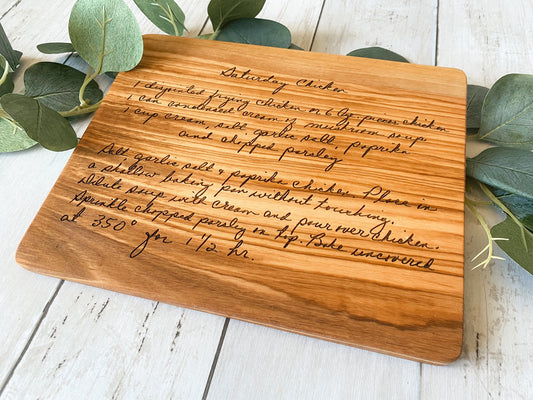 Saturday Chicken
1 disjointed frying chicken or 6 lg. pieces chicken
1 can condensed cream of mushroom soup
1 cup cream, salt, garlic salt, paprika
and chopped parsley
Salt, garlic salt & paprika chicken. Place in
a shallow baking pan without touching.
Dilute soup with cream and pour over chicken.
Sprinkle chopped parsley on top. Bake uncovered
at 350° for 1 1/2 hr.